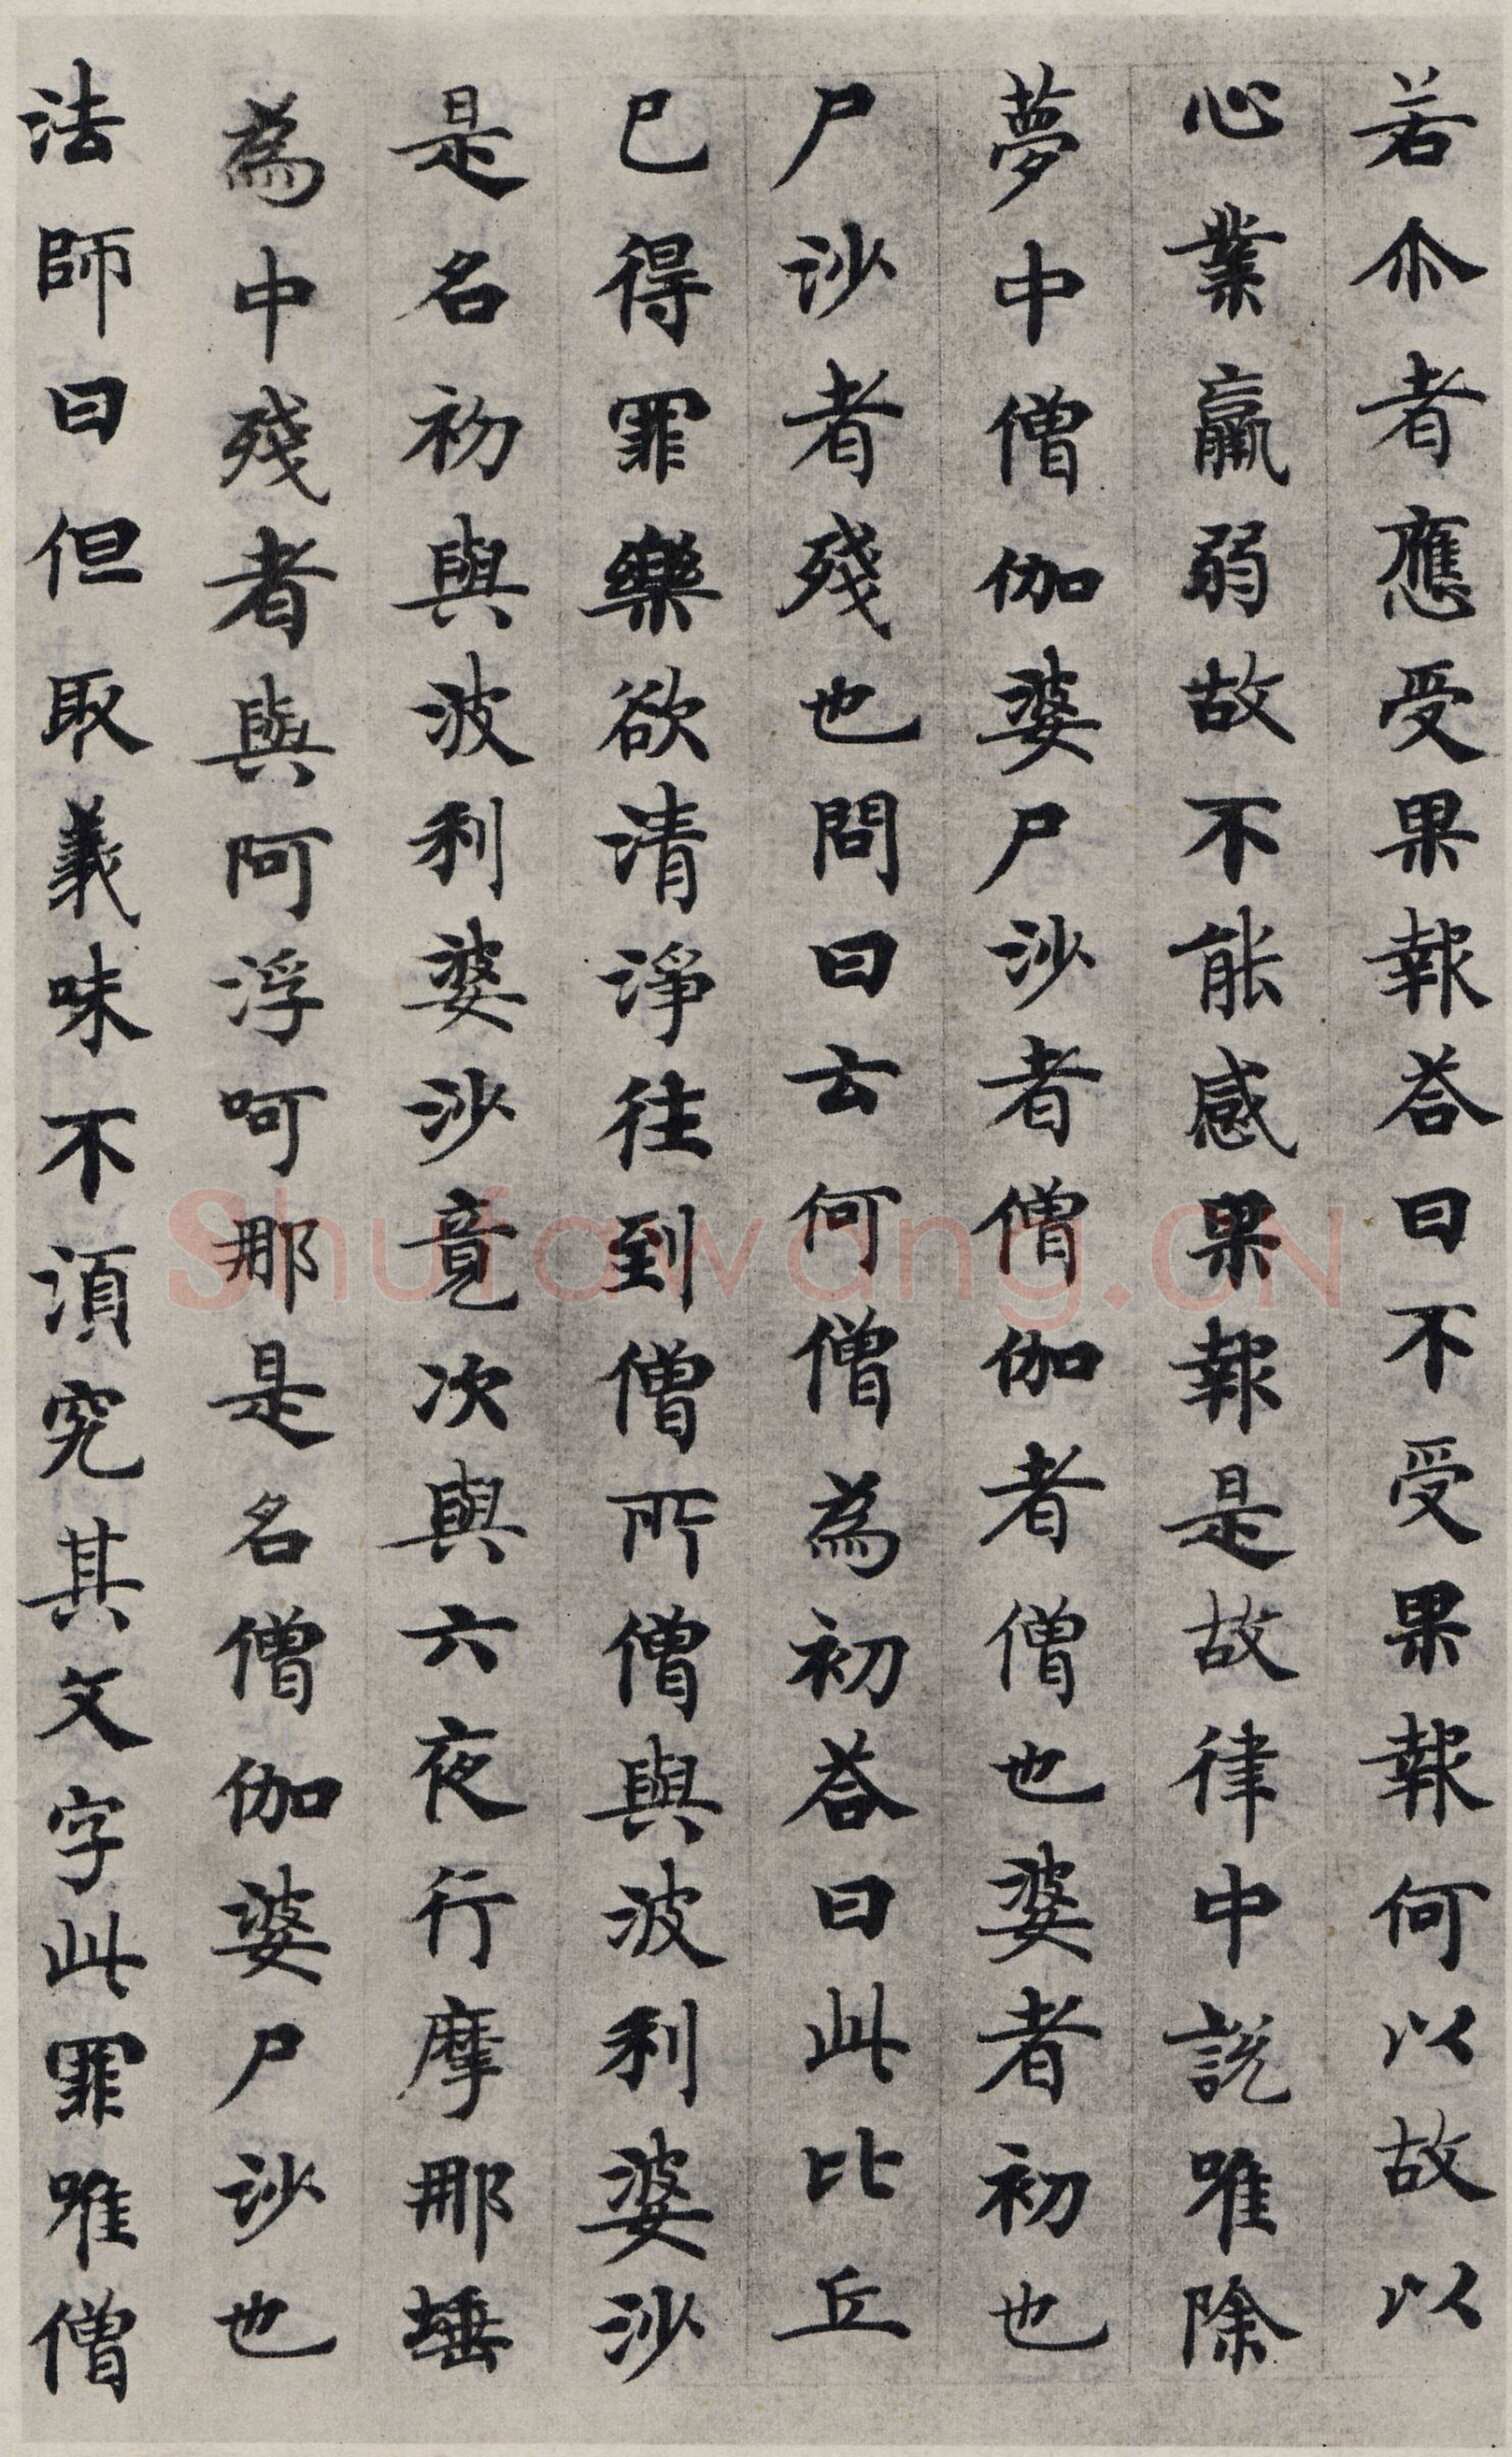 若尒者應受果報荅曰不受果報何以故以
心業羸弱故不能感果報是故律中説唯除
夢中僧伽婆尸沙者僧伽者僧也婆者初也
尸沙者殘也問曰云何僧為初荅曰此比丘
已得罪樂欲清淨往到僧所僧與波利婆沙
是名初與波利婆沙竟次與六夜行摩那埵
為中殘者與阿浮呵那是名僧伽婆尸沙也
法師曰但取義味不須究其文字此罪唯僧
shufawang.cn